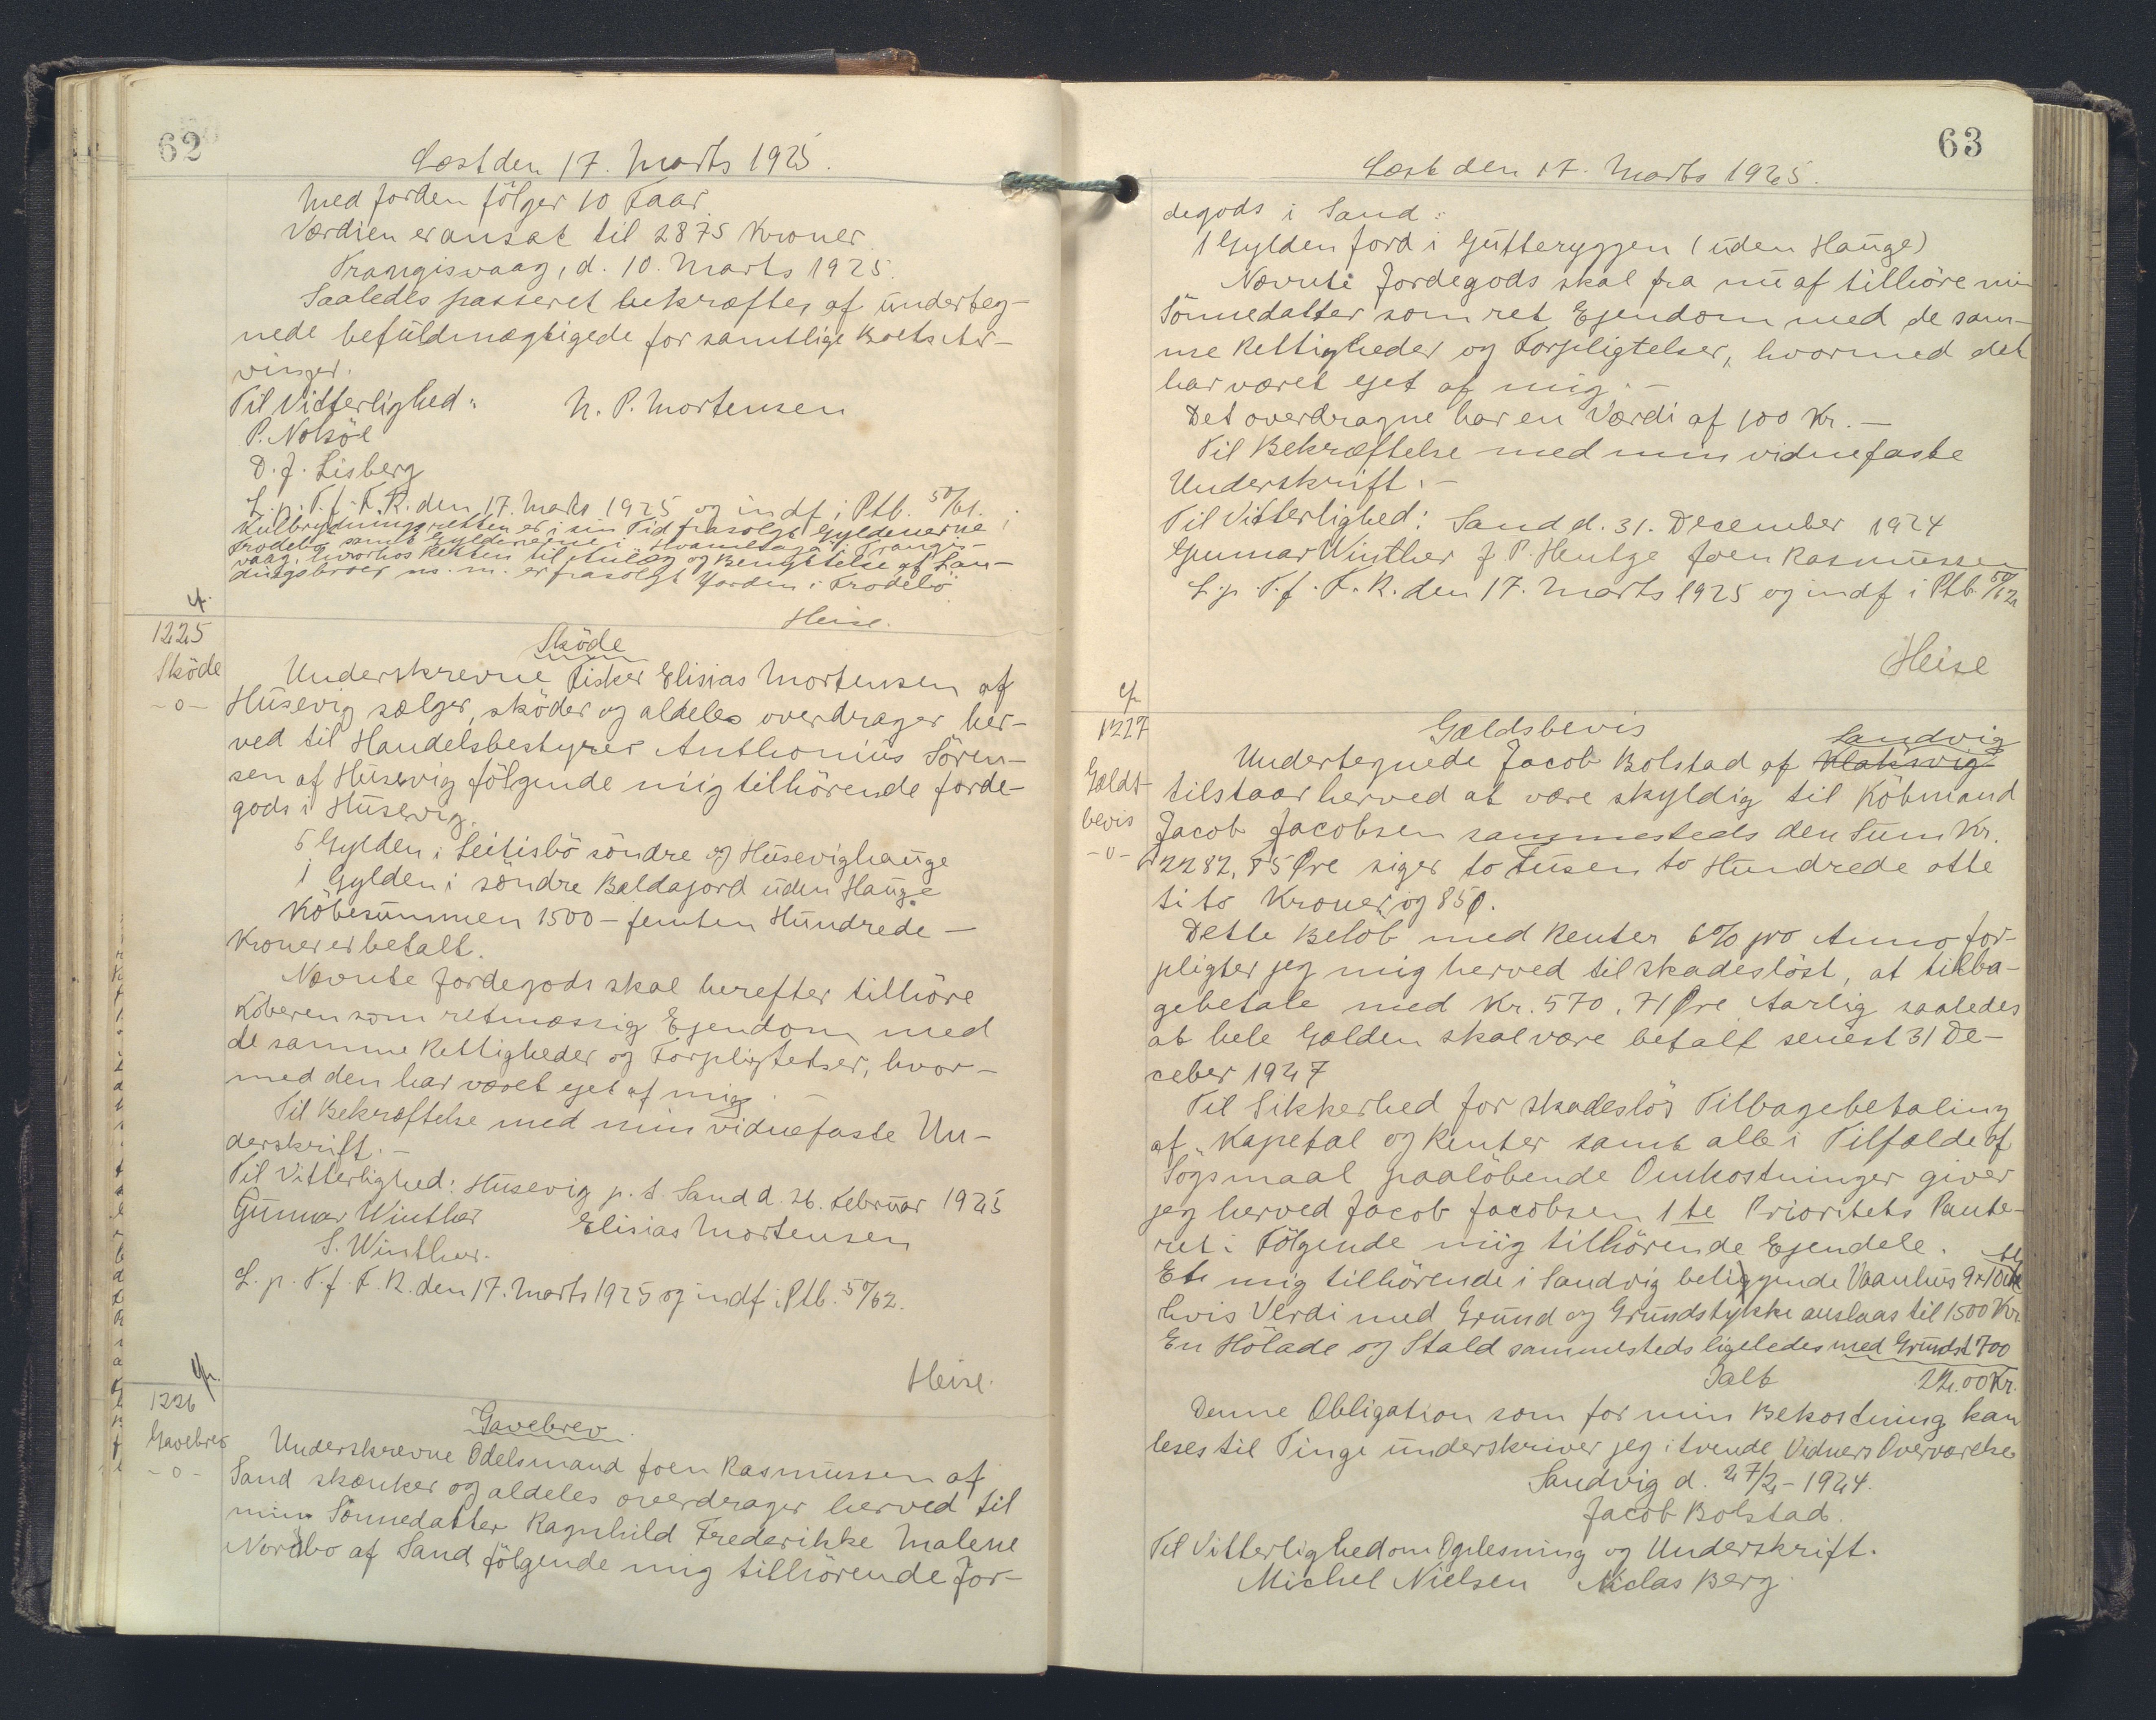 62
Læst den 17. Marts 1925.
Med Jorden fölger 10 Faar.
Værdien er ansat til 2875 Kroner.
Trangisvaag, d. 10. Marts 1925.
Saaledes passeret bekræftes af underteg-
nede befuldmægtigede for samtlige Boets Ar-
vinger.
Til Vitterlighed: N. P. Mortensen
P. Nolsöe
D. J. Lisberg
L. p. T. f. F. R. den 17. Marts 1925 og indf i Ptb. 50/61.
Kulbrydningsretten er i sin Tid frasolgt Gyldenerne i
Trodebö samt Gyldenerne i Hvamlhaga i Trangis-
vaag, hvorhos Retten til Anlæg og Benyttelse af Lan-
dingsbroer m. m. er frasolgt Jorden i Trodebö
Heise.
cf.
1225
Sköde
-o-
Sköde
Underskrevne Fisker Elisias Mortensen af
Húsevig sælger, sköder og aldeles overdrager her-
ved til Handelsbestyrer Anthonius Sören-
sen af Húsevig fölgende mig tilhörende Jorde-
gods i Húsevig.
5 Gylden i Leitisbö söndre og Húsevighauge
1 Gylden i söndre Baldagjord uden Hauge
Köbesummen 1500 - femten Hundrede -
Kroner er betalt.
Nævnte Jordegods skal herefter tilhöre
Köberen som retmæssig Ejendom med
de samme Rettigheder og Forpligtelser, hvor-
med den har været ejet af mig. -
Til Bekræftelse med min vidnefaste Un-
derskrift. -
Til Vitterlighed: Húsevig p. t. Sand d. 26. Februar 1925
Gunnar Winther Elisias Mortensen
S. Winther.
L. p. T. f. F. R. den 17. Marts 1925 og indf. i Ptb. 50/62.
Heise.
cf.
1226
Gavebrev
-o-
Gavebrev.
Underskrevne Odelsmand Joen Rasmussen af
Sand skænker og aldeles overdrager herved til
min Sönnedatter Ragnhild Frederikke Malene
Nordbo af Sand fölgende mig tilhörende Jor-
63
Læst den 17. Marts 1925.
degods i Sand:
1 Gylden Jord i Gutteryggen (uden Hauge)
Nævnte Jordegods skal fra nu af tilhöre min
Sönnedatter som ret Ejendom med de sam-
me Rettigheder og Forpligtelser, hvormed det
har været ejet af mig. -
Det overdragne har en Værdi af 100 Kr. -
Til Bekræftelse med min vidnefaste
Underskrift. -
Til Vitterlighed: Sand d. 31. December 1924
Gunnar Winther J P. Hentze Joen Rasmussen
L. p. T. f. F. R. den 17. Marts 1925 og indf i Ptb. 50/62
Heise
cf.
1227
Gælds-
bevis
-o-
Gældsbevis
Sandvig
Undertegnede Jacob Bolstad af Klaksvig
tilstaar herved at være skyldig til Köbmand
Jacob Jacobsen sammesteds den Sum Kr.
2282,85 Øre siger to Tusen to Hundrede otte
ti to Kroner og 85ø.
Dette Belöb med Renter 6% pro Anno for-
pligter jeg mig herved til skadeslöst, at tilba-
gebetale med Kr. 570.71 Øre Aarlig saaledes
at hele Gælden skal være betalt senest 31 De-
ceber 1927
Til Sikkerhed for skadeslös Tilbagebetaling
af Kapetal og Renter samt alle i Tilfælde af
Sögsmaal paalöbende Omkostninger giver
jeg herved Jacob Jacobsen 1te Prioritets Pante-
ret i Fölgende mig tilhörende Ejendele.
Ete mig tilhörende i Sandvig beliggende Vaanhus 9x10
hvis Verdi med Grund og Grundstykke anslaas til 1500 Kr
En Hölade og Stald sammesteds ligeledes med Grundst 700
Ialt 22.00 Kr.
Denne Obligation som for min Bekostning kan
leses til Tinge underskriver jeg i tvende Vidners Overværelse
Sandvig d. 27/2 - 1924.
Jacob Bolstad.
Til Vitterlighed om Oplesning og Underskrift.
Michel Nielsen Niclas Berg